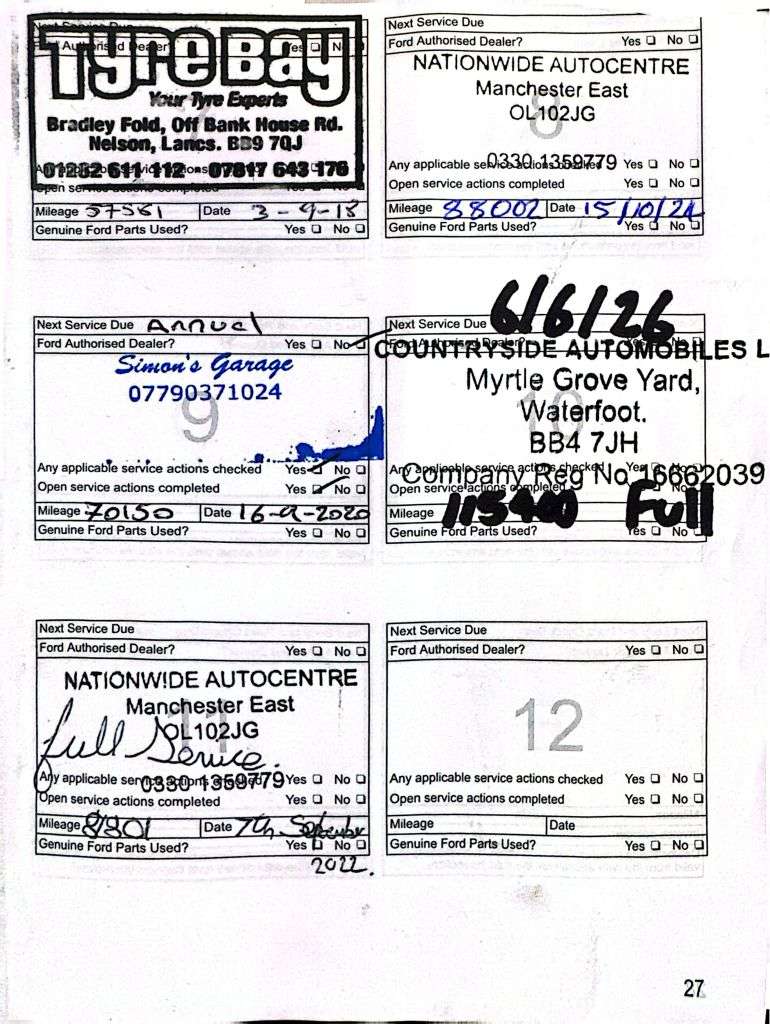 Next Service Due
Ford Authorised Dealer? Yes No
TYRE BAY
Your Tyre Experts
7
Bradley Fold, Off Bank House Rd.
Nelson, Lancs. BB9 7QJ
01282 611 112 07817 643 176
Open service actions completed Yes No
Mileage 57561 Date 3-9-18
Genuine Ford Parts Used? Yes No
Next Service Due
Ford Authorised Dealer? Yes No
NATIONWIDE AUTOCENTRE
Manchester East
OL102JG
8
0330 1359779
Any applicable service actions checked Yes No
Open service actions completed Yes No
Mileage 88002 Date 15/10/24
Genuine Ford Parts Used? Yes No
Next Service Due Annual
Ford Authorised Dealer? Yes No
Simon's Garage
07790371024
9
Any applicable service actions checked Yes No
Open service actions completed Yes No
Mileage 70150 Date 16-9-2020
Genuine Ford Parts Used? Yes No
Next Service Due 6/6/26
Ford Authorised Dealer? Yes No
COUNTRYSIDE AUTOMOBILES L
Myrtle Grove Yard,
Waterfoot.
10
BB4 7JH
Any applicable service actions checked Yes No
Company Reg No 16662039
Open service actions completed
Mileage 115900 Full
Genuine Ford Parts Used? Yes No
Next Service Due
Ford Authorised Dealer? Yes No
NATIONWIDE AUTOCENTRE
Manchester East
OL102JG
11
Full Service.
Any applicable service actions checked Yes No
0330 1359779
Open service actions completed Yes No
Mileage 81801 Date 7th September
Genuine Ford Parts Used? Yes No
2022.
Next Service Due
Ford Authorised Dealer? Yes No
12
Any applicable service actions checked Yes No
Open service actions completed Yes No
Mileage Date
Genuine Ford Parts Used? Yes No
27